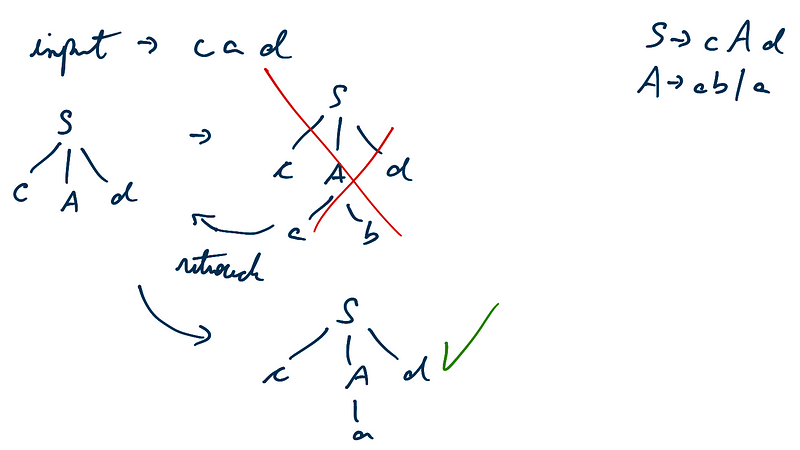 input → c a d
S → c A d
A → ab / a
S
c A d
→
S
c A d
a b
S
c A d
a